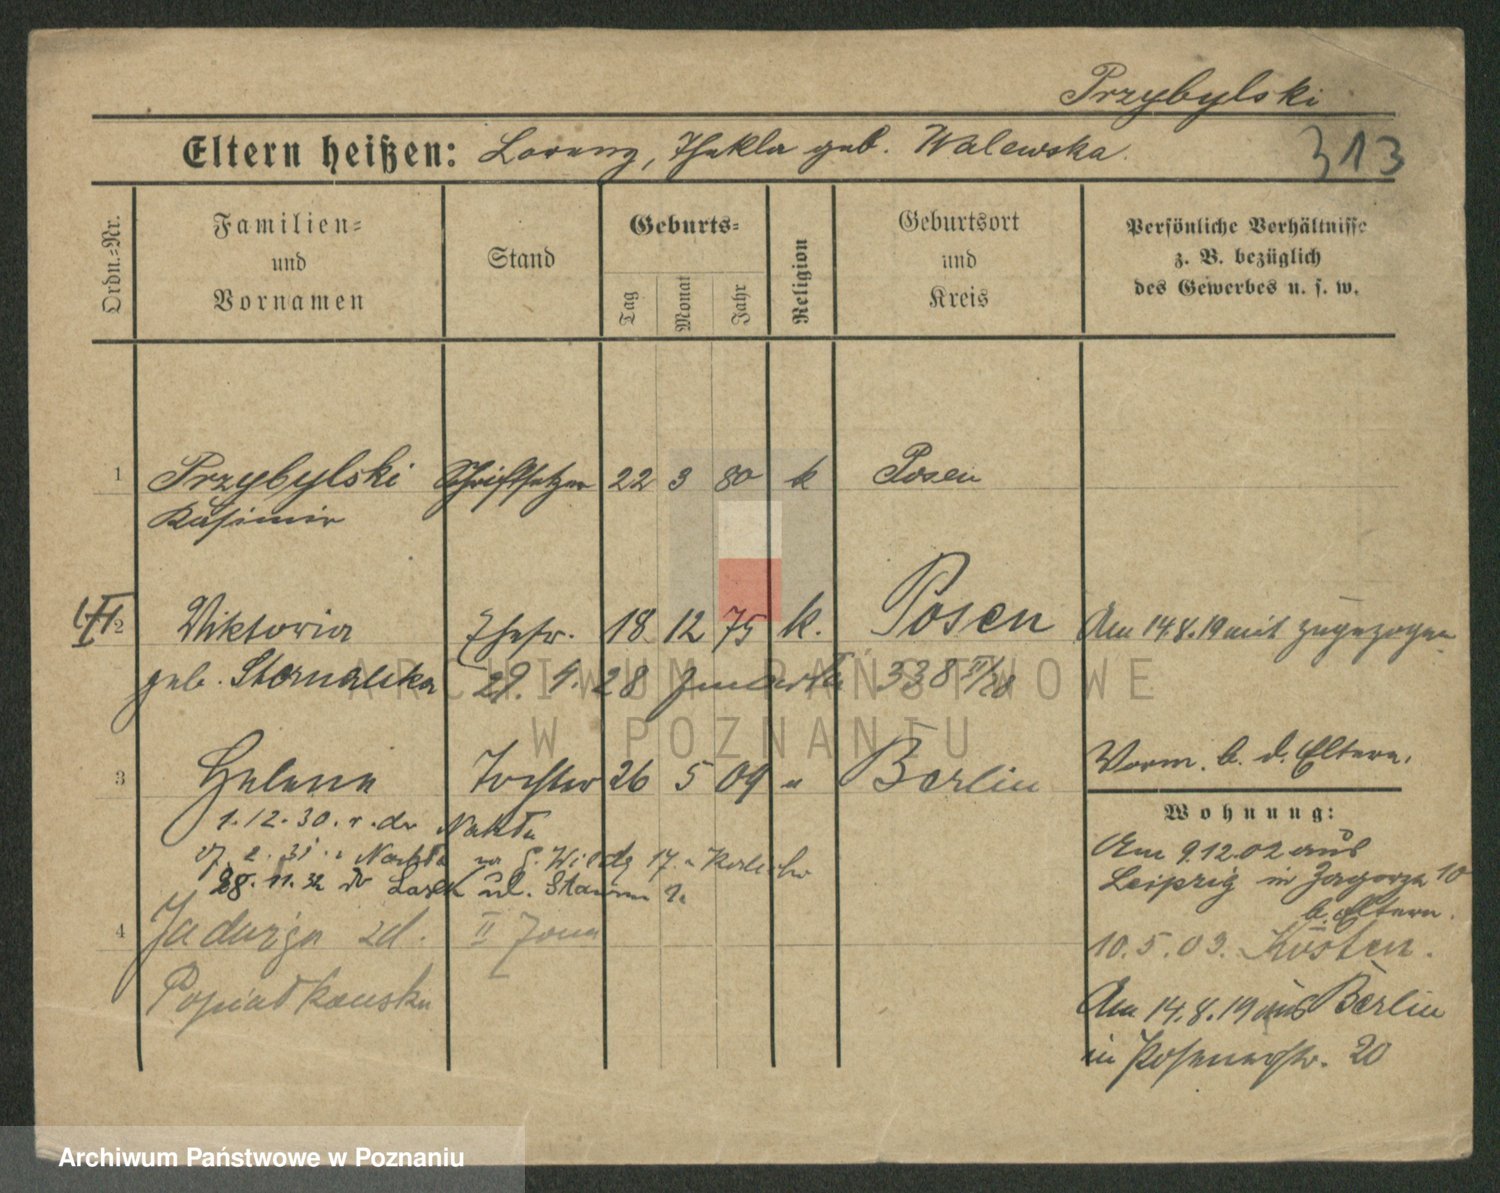 Przybylski
Eltern heißen: Lorenz, Thekla geb. Walewska.
313
Ordn.-Nr.
Familien-
und
Vornamen
Stand
Geburts-
Tag
Monat
Jahr
Religion
Geburtsort
und
Kreis
Persönliche Verhältnisse
z. B. bezüglich
des Gewerbes u. s. w.
1 Przybylski Schriftsetzer 22 3 80 k Posen
Kasimir
2 Viktoria Ehefr. 18 12 75 k. Posen Am 14.8.19 mit zugezogen
geb. 28 338
3 Helene Tochter 26 5 09 " Berlin Vorm. b. d. Eltern.
Wohnung:
1.12.30.
28.11.32 ul.
Am 9.12.02 aus
Leipzig in Zagorze 10
b. Eltern.
4 Jadwiga zd. II żona
10.5.03. Kosten.
Popiatkowska
Am 14.8.19 aus Berlin
in Posenerstr. 20
ARCHIWUM PAŃSTWOWE
W POZNANIU
Archiwum Państwowe w Poznaniu